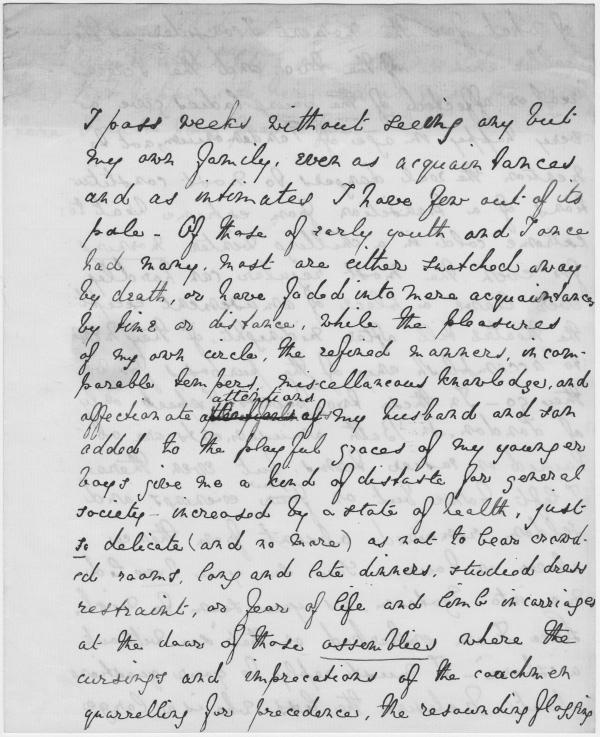 I pass weeks without seeing any but
my own family, even as acquaintances
and as intimates I have few out of its
pale - Of those of early youth and I once
had many, most are either snatched away
by death, or have faded into mere acquaintances
by time or distance, while the pleasures
of my own circle, the refined manners, incom-
parable tempers, miscellaneous knowledge, and
attentions
affectionate of my husband and son
added to the playful graces of my younger
boys give me a kind of distaste for general
society - increased by a state of health, just
so delicate (and no more) as not to bear crowd-
ed rooms, long and late dinners, studied dress
restraint, or fear of life and limb in carriages
at the door of those assemblies where the
cursings and improcations of the coachmen
quarrelling for precedence, the resounding flogging